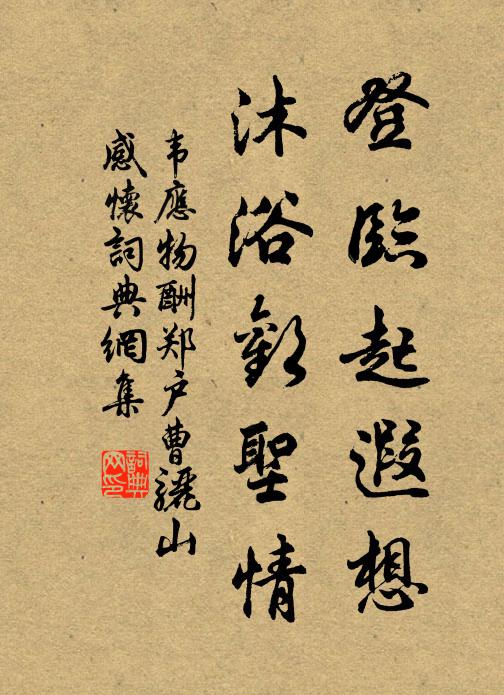 登臨起遐想
沐浴歡聖情
韦應物酬郑户曹驪山
感懷詞典網集
詞典网印